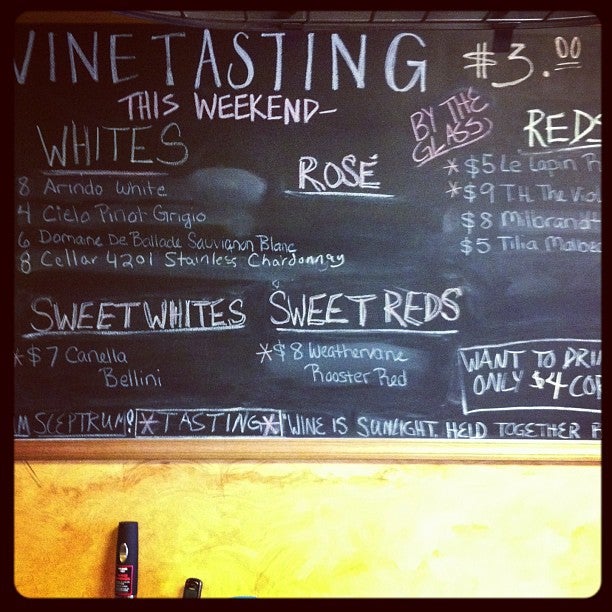 WINE TASTING $3.00
THIS WEEKEND-
BY THE
GLASS
WHITES
ROSÉ
REDS
8 Arindo White
4 Cielo Pinot Grigio
6 Domaine De Ballade Sauvignon Blanc
8 Cellar 4201 Stainless Chardonnay
*$5 Le Lapin R
*$9 T.H. The Viol
$8 Milbrandt
$5 Tilia Malbec
SWEET WHITES
SWEET REDS
*$7 Canella
Bellini
*$8 Weathervane
Rooster Red
WANT TO DRIN
ONLY $4 COR
M SCEPTRUM! *TASTING* "WINE IS SUNLIGHT, HELD TOGETHER B